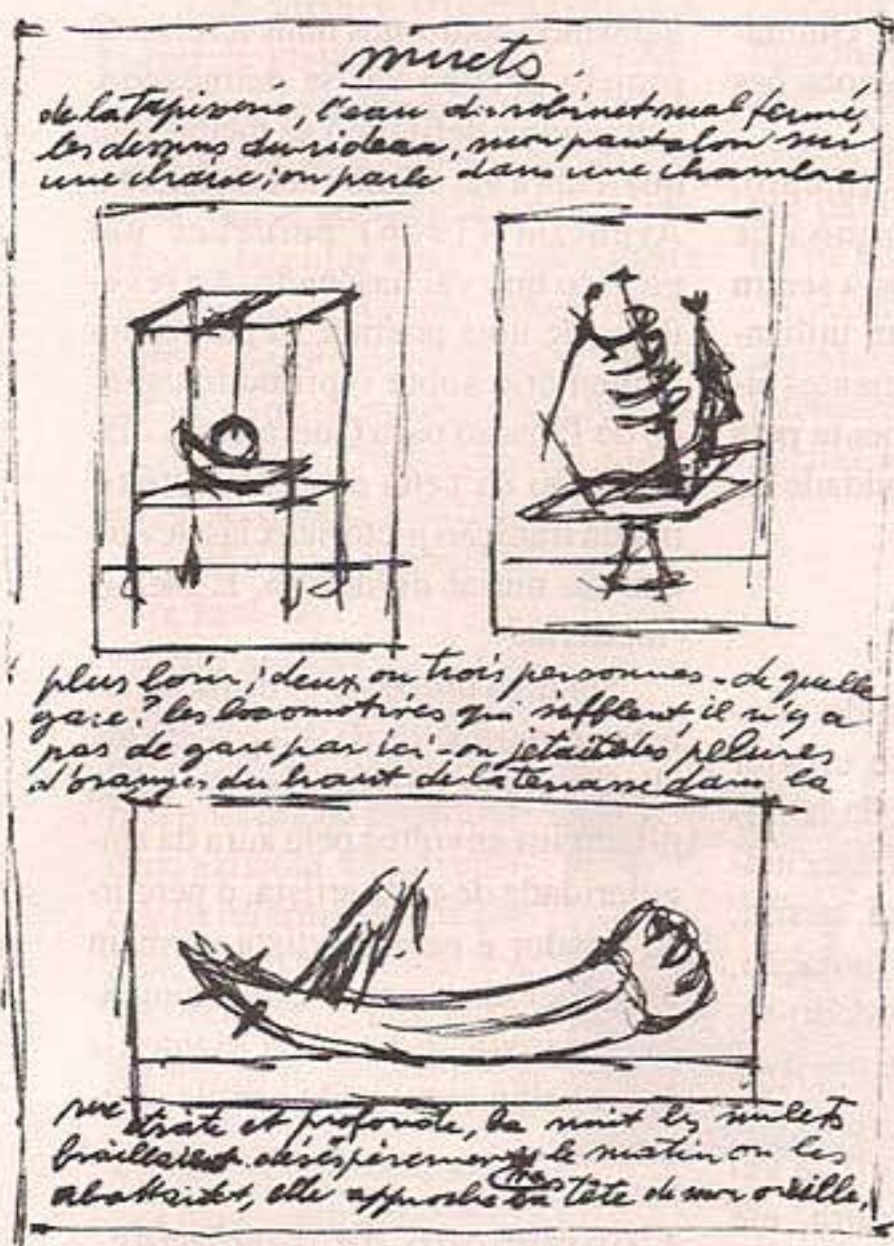 muets.
de la tapisserie, l'eau du robinet mal fermé,
les dessins du rideau, mon pantalon sur
une chaise; on parle dans une chambre
plus loin; deux ou trois personnes - de quelle
gare? les locomotives qui sifflent, il n'y a
pas de gare par ici - on jetait des pelures
d'oranges du haut de la terrasse dans la
rue étroite et profonde, la nuit les mulets
braillaient désespérement, le matin on les
abattait, elle approche sa tête de mon oreille,